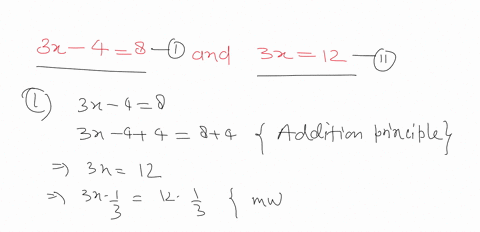 3x - 4 = 8 — (I) and 3x = 12 — (II)
(I) 3x - 4 = 8
3x - 4 + 4 = 8 + 4 { Addition principle }
⇒ 3x = 12
⇒ 3x · 1/3 = 12 · 1/3 {